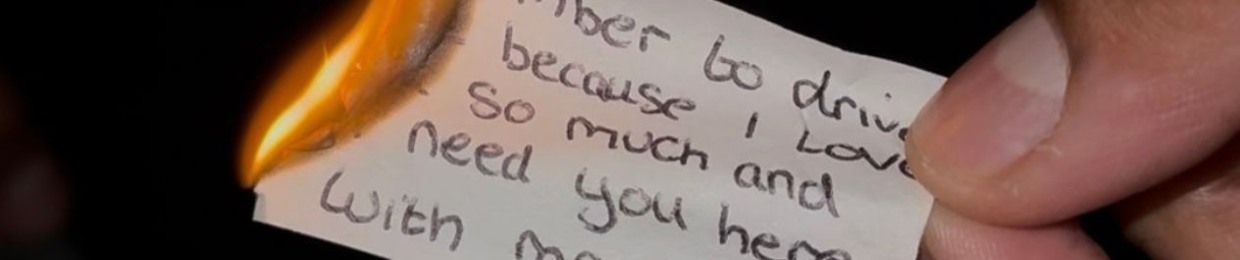 to drive
because I Love
so much and
need you here
with me